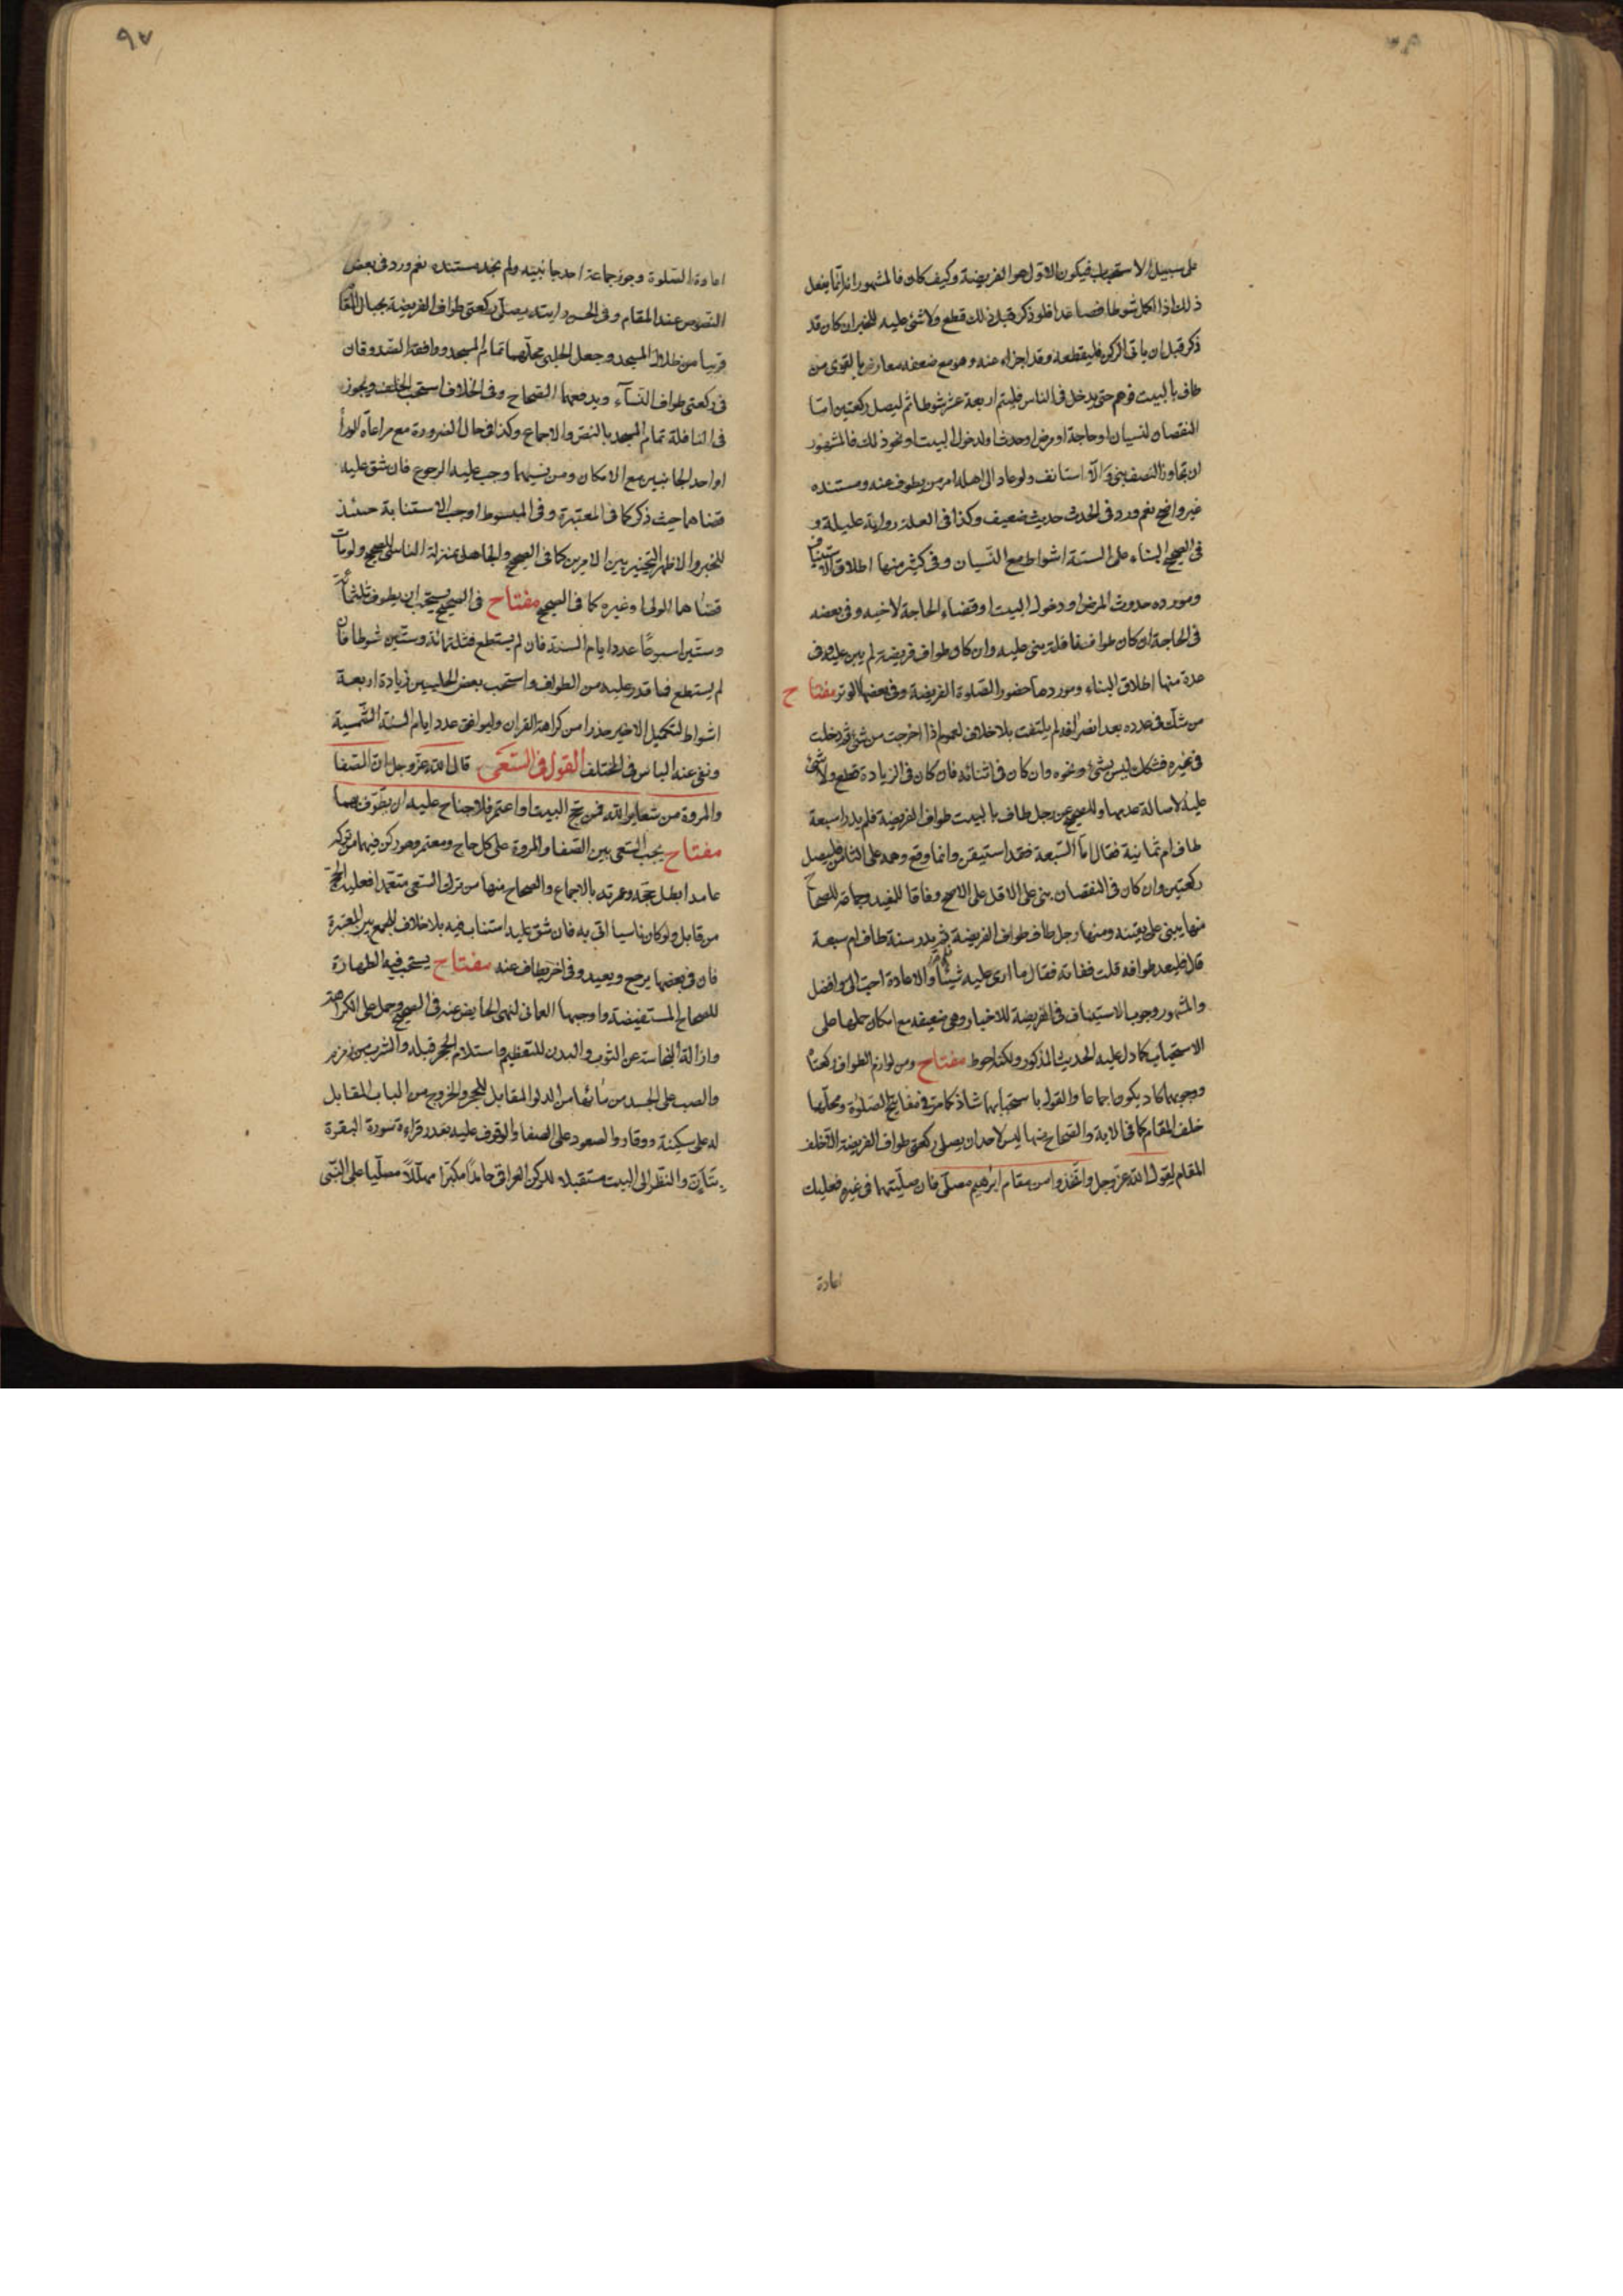 على سبيل الاستحباب فيكون الاول هو الفريضة وكيف كان فالمشهور انه انما يفعل
ذلك اذا اكمل شوطا فصاعدا فلو ذكر قبل ذلك قطع ولا شئ عليه للخبر ان كان قد
ذكر قبل ان ياتى الركن فليقطعه وقد اجزاء عنه وهو مع ضعفه معارض بالقوى من
طاف بالبيت فوهم حتى يدخل فى الثامن فليتم اربعة عشر شوطا ثم ليصل ركعتين اما
النقصان لنسيان او حاجة او مرض او حدث او لدخول البيت او نحو ذلك فالمشهور
ان تجاوز النصف بنى والا استانف ولو عاد الى اهله امر من يطوف عنه ومستنده
غير واضح نعم ورد فى الحدث حديث ضعيف وكذا فى العلة رواية عليلة و
فى الصحيح البناء على الستة اشواط مع النسيان وفى كثير منها اطلاق الاستيناف
ومورده حدوث المرض او دخول البيت او قضاء الحاجة لاخيه وفى بعضه
فى الحاجة ان كان طواف نافلة بنى عليه وان كان طواف فريضة لم يبن عليه وفى
عدة منها اطلاق البناء وموردها حضور الصلوة الفريضة وفى بعضها الوتر مفتاح
من شك فى عدده بعد انصرافه لم يلتفت بلا خلاف لعموم اذا خرجت من شئ ثم دخلت
فى غيره فشكك ليس بشئ ونحوه وان كان فى اثنائه فان كان فى الزيادة قطع ولا شئ
عليه لاصالة عدمها وللصحيح عن رجل طاف بالبيت طواف الفريضة فلم يدر اسبعة
طاف ام ثمانية فقال اما السبعة فقد استيقن وانما وقع وهمه على الثامن فليصل
ركعتين وان كان فى النقصان بنى على الاقل على الاصح وفاقا للمفيد وجماعة للصحاح
منها يبنى على يقينه ومنها رجل طاف طواف الفريضة فلم يدر ستة طاف ام سبعة
قال فليعد طوافه قلت ففاته فقال ما ارى عليه شيئا والاعادة احب الى وافضل
والمشهور وجوب الاستيناف فى الفريضة للاخبار وهى ضعيفة مع امكان حملها على
الاستحباب كما دل عليه الحديث المذكور ولكنه احوط مفتاح ومن لوازم الطواف ركعتاه
ووجوبهما كاد يكون اجماعا والقول باستحبابهما شاذ كما مر فى مفاتيح الصلوة ومحلها
خلف المقام كما فى الاية والصحاح منها ليس لاحد ان يصلى ركعتى طواف الفريضة الا خلف
المقام لقول الله عز وجل واتخذوا من مقام ابرهيم مصلى فان صليتهما فى غيره فعليك
اعادة
٩٧
اعادة الصلوة وجوز جماعة احد جانبيه ولم نجد مستنده نعم ورد فى بعض
النصوص عند المقام وفى الحسن رايته يصلى ركعتى طواف الفريضة بحيال المقام
قريبا من ظلال المسجد وجعل الحلبى محلهما تمام المسجد ووافقه الصدوقان
فى ركعتى طواف النساء ويدفعهما الصحاح وفى الخلاف استحب الخلف ويجوز
فى النافلة تمام المسجد بالنص والاجماع وكذا فى حال الضرورة مع مراعاة الوراء
او احد الجانبين مع الامكان ومن نسيهما وجب عليه الرجوع فان شق عليه
قضاهما حيث ذكر كما فى المعتبرة وفى المبسوط اوجب الاستنابة حينئذ
للخبر والاظهر التخيير بين الامرين كما فى الصحيح والجاهل بمنزلة الناسى للصحيح ولو مات
قضاهما الولى او غيره كما فى الصحيح مفتاح فى الصحيح يستحب ان يطوف ثلثمائة
وستين اسبوعا عدد ايام السنة فان لم يستطع فثلثمائة وستين شوطا فان
لم يستطع فما قدر عليه من الطواف واستحب بعض الحلبيين زيادة اربعة
اشواط لتكميل الاخير حذرا من كراهة القران وليوافق عدد ايام السنة الشمسية
ونفى عنه الباس فى المختلف القول فى السعى قال الله عز وجل ان الصفا
والمروة من شعاير الله فمن حج البيت او اعتمر فلا جناح عليه ان يطوف بهما
مفتاح يجب السعى بين الصفا والمروة على كل حاج ومعتمر وهو ركن فيهما من تركه
عامدا بطل حجه وعمرته بالاجماع والصحاح منها من ترك السعى متعمدا فعليه الحج
من قابل ولو كان ناسيا اتى به فان شق عليه استناب فيه بلا خلاف للجمع بين المعتبرة
فان فى بعضها يرجع ويعيد وفى اخر يطاف عنه مفتاح يستحب فيه الطهارة
للصحاح المستفيضة واوجبها العمانى لنهى الحايض عنه فى الصحيح وحمل على الكراهة
وازالة النجاسة عن الثوب والبدن للتعظيم واستلام الحجر قبله والشرب من زمزم
والصب على الجسد من مائها من الدلو المقابل للحجر والخروج من الباب المقابل
له على سكينة ووقار والصعود على الصفا والوقوف عليه بقدر قراءة سورة البقرة
بتأن والنظر الى البيت مستقبلا للركن العراقى حامدا مكبرا مهللا مصليا على النبى